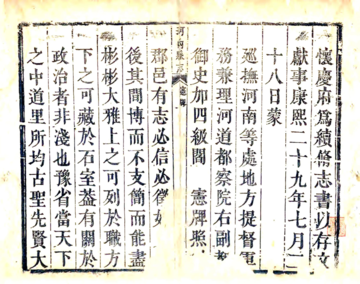 懷慶府爲續脩志書以存文
獻事康熙二十九年七月二
十八日蒙
廵撫河南等處地方提督軍
務兼理河道都察院右副
御史加四級閻　憲牌照
郡邑有志必信必徵
後其間博而不支簡而能盡
彬彬大雅上之可列於職方
下之可藏於石室葢有關於
政治者非淺也豫省當天下
之中道里所均古聖先賢大